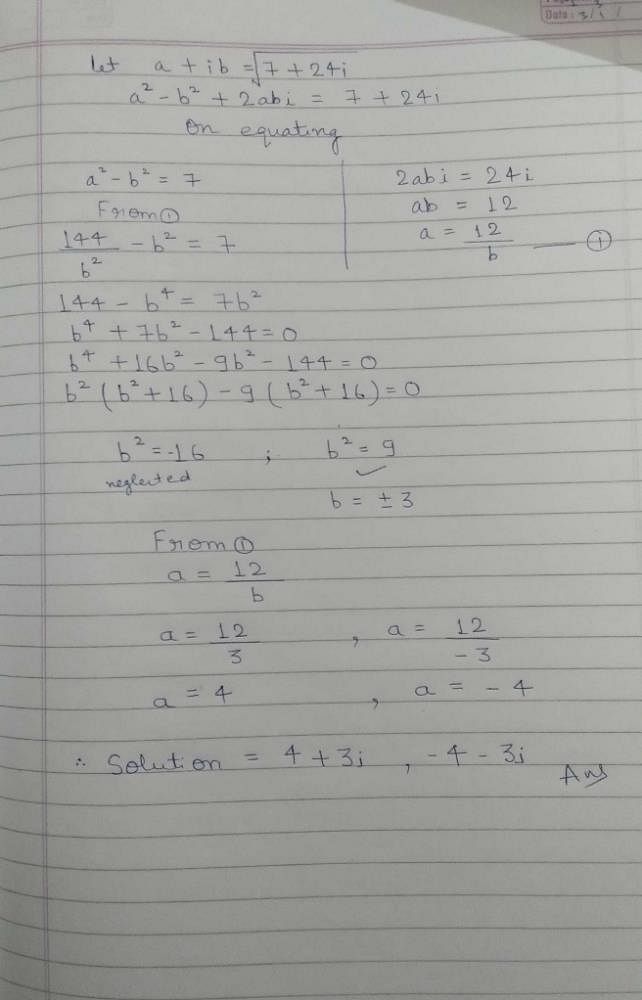 Date: 3/1/
Let a + ib = √7 + 24i
a² - b² + 2abi = 7 + 24i
On equating
a² - b² = 7
From ①
144/b² - b² = 7
2abi = 24i
ab = 12
a = 12/b — ①
144 - b⁴ = 7b²
b⁴ + 7b² - 144 = 0
b⁴ + 16b² - 9b² - 144 = 0
b² (b² + 16) - 9 (b² + 16) = 0
b² = -16 ; b² = 9
neglected ✓
b = ± 3
From ①
a = 12/b
a = 12/3 , a = 12/-3
a = 4 , a = - 4
∴ Solution = 4 + 3i , -4 - 3i Ans